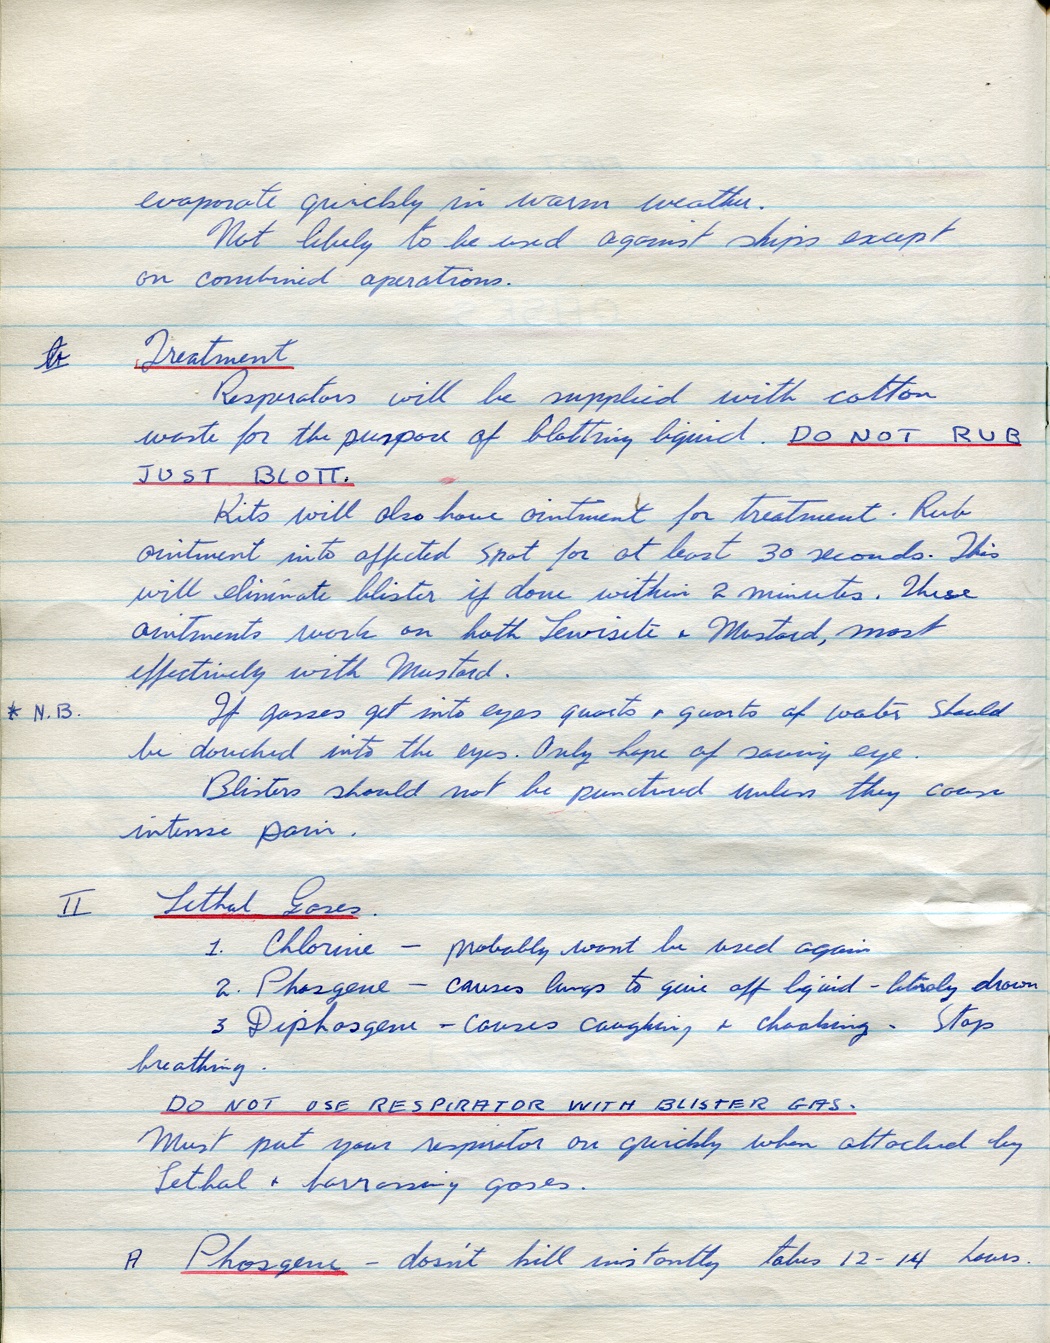 evaporate quickly in warm weather.
Not likely to be used against ships except
on combined operations.
Treatment
Resperators will be supplied with cotton
waste for the purpose of blotting liquid. DO NOT RUB
JUST BLOTT.
Kits will also have ointment for treatment. Rub
ointment into affected spot for at least 30 seconds. This
will eliminate blister if done within 2 minutes. These
ointments work on both Lewisite & Mustard, most
effectively with Mustard.
* N.B. If gasses get into eyes quarts & quarts of water should
be douched into the eyes. Only hope of saving eye.
Blisters should not be punctured unless they cause
intense pain.
II Lethal Gases.
1. Chlorine - probably wont be used again
2. Phosgene - causes lungs to give off liquid - literaly drown
3 Diphosgene - causes coughing & choaking. Stop
breathing.
DO NOT USE RESPIRATOR WITH BLISTER GAS.
Must put your respirator on quickly when attacked by
Lethal & harrassing gases.
A Phosgene - dosn't kill instantly takes 12-14 hours.